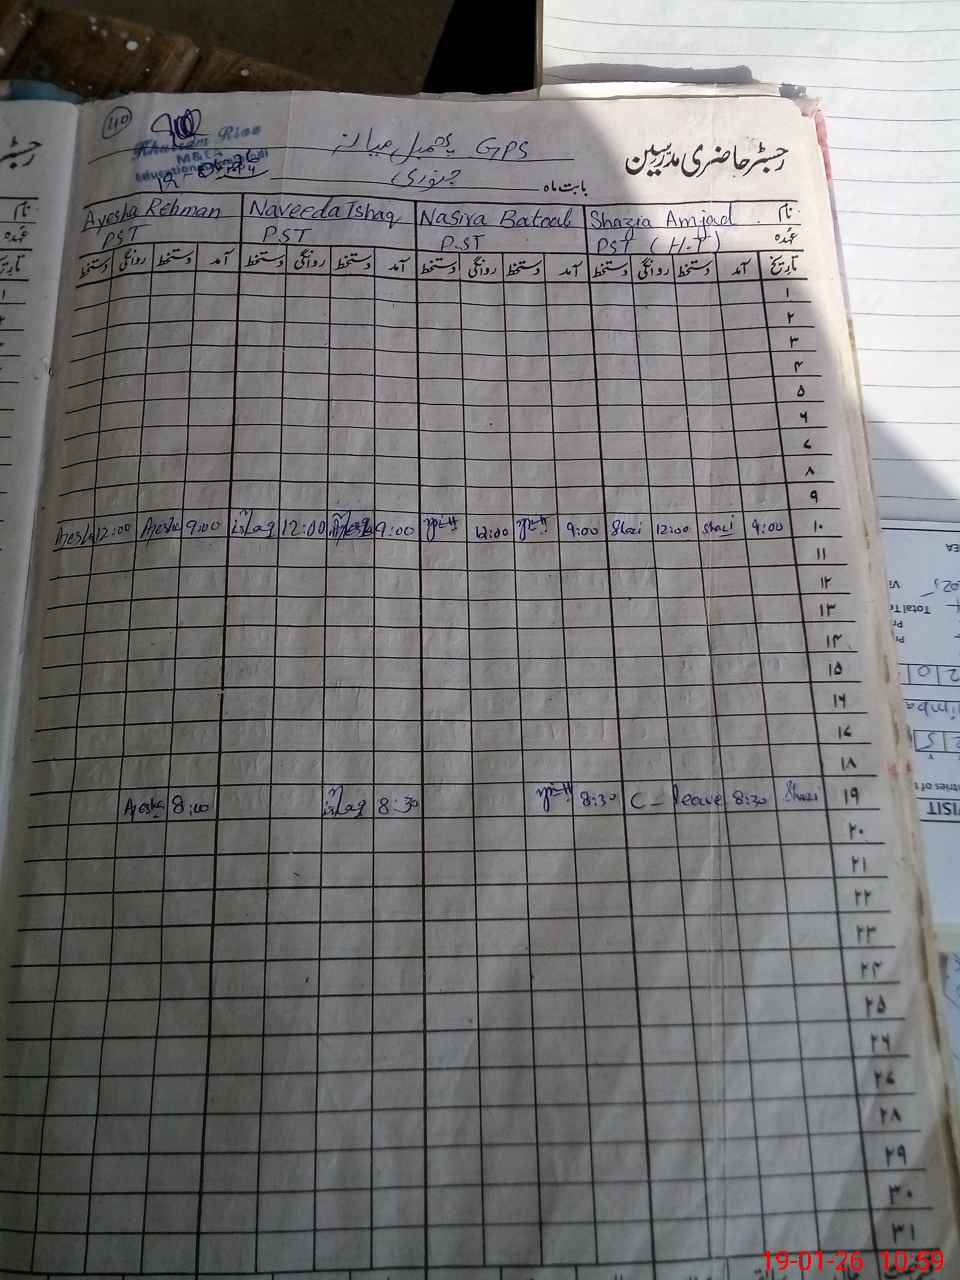 40
رجسٹر حاضری مدرسین
GPS
بابت ماہ جنوری
Khateem Riaz
MBEG
Ayesha Rehman Naveeda Ishaq Nasira Batool Shazia Amjad نام
PST PST PST PST (H.T) عہدہ
دستخط روانگی دستخط آمد دستخط روانگی دستخط آمد دستخط روانگی دستخط آمد دستخط روانگی دستخط آمد تاریخ
۱
۲
۳
۴
۵
۶
۷
۸
۹
Ayesha 12:00 Ayesha 9:00 ishaq 12:00 9:00 12:00 9:00 Shazi 12:00 Shazi 9:00 ۱۰
۱۱
۱۲
۱۳
۱۴
۱۵
۱۶
۱۷
۱۸
Ayesha 8:00 ishaq 8:30 8:30 C - leave 8:30 Shazi ۱۹
۲۰
۲۱
۲۲
۲۳
۲۴
۲۵
۲۶
۲۷
۲۸
۲۹
۳۰
۳۱
VISIT
19-01-26 10:59